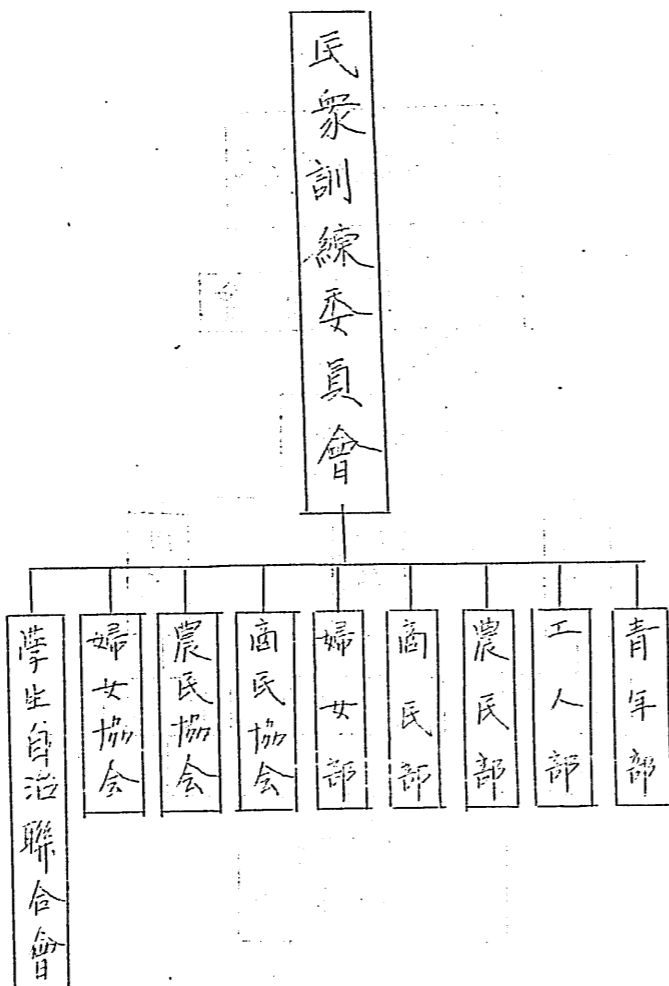 民衆訓練委員會
青年部
工人部
農民部
商民部
婦女部
商民協会
農民協会
婦女協会
學生自治聯合會